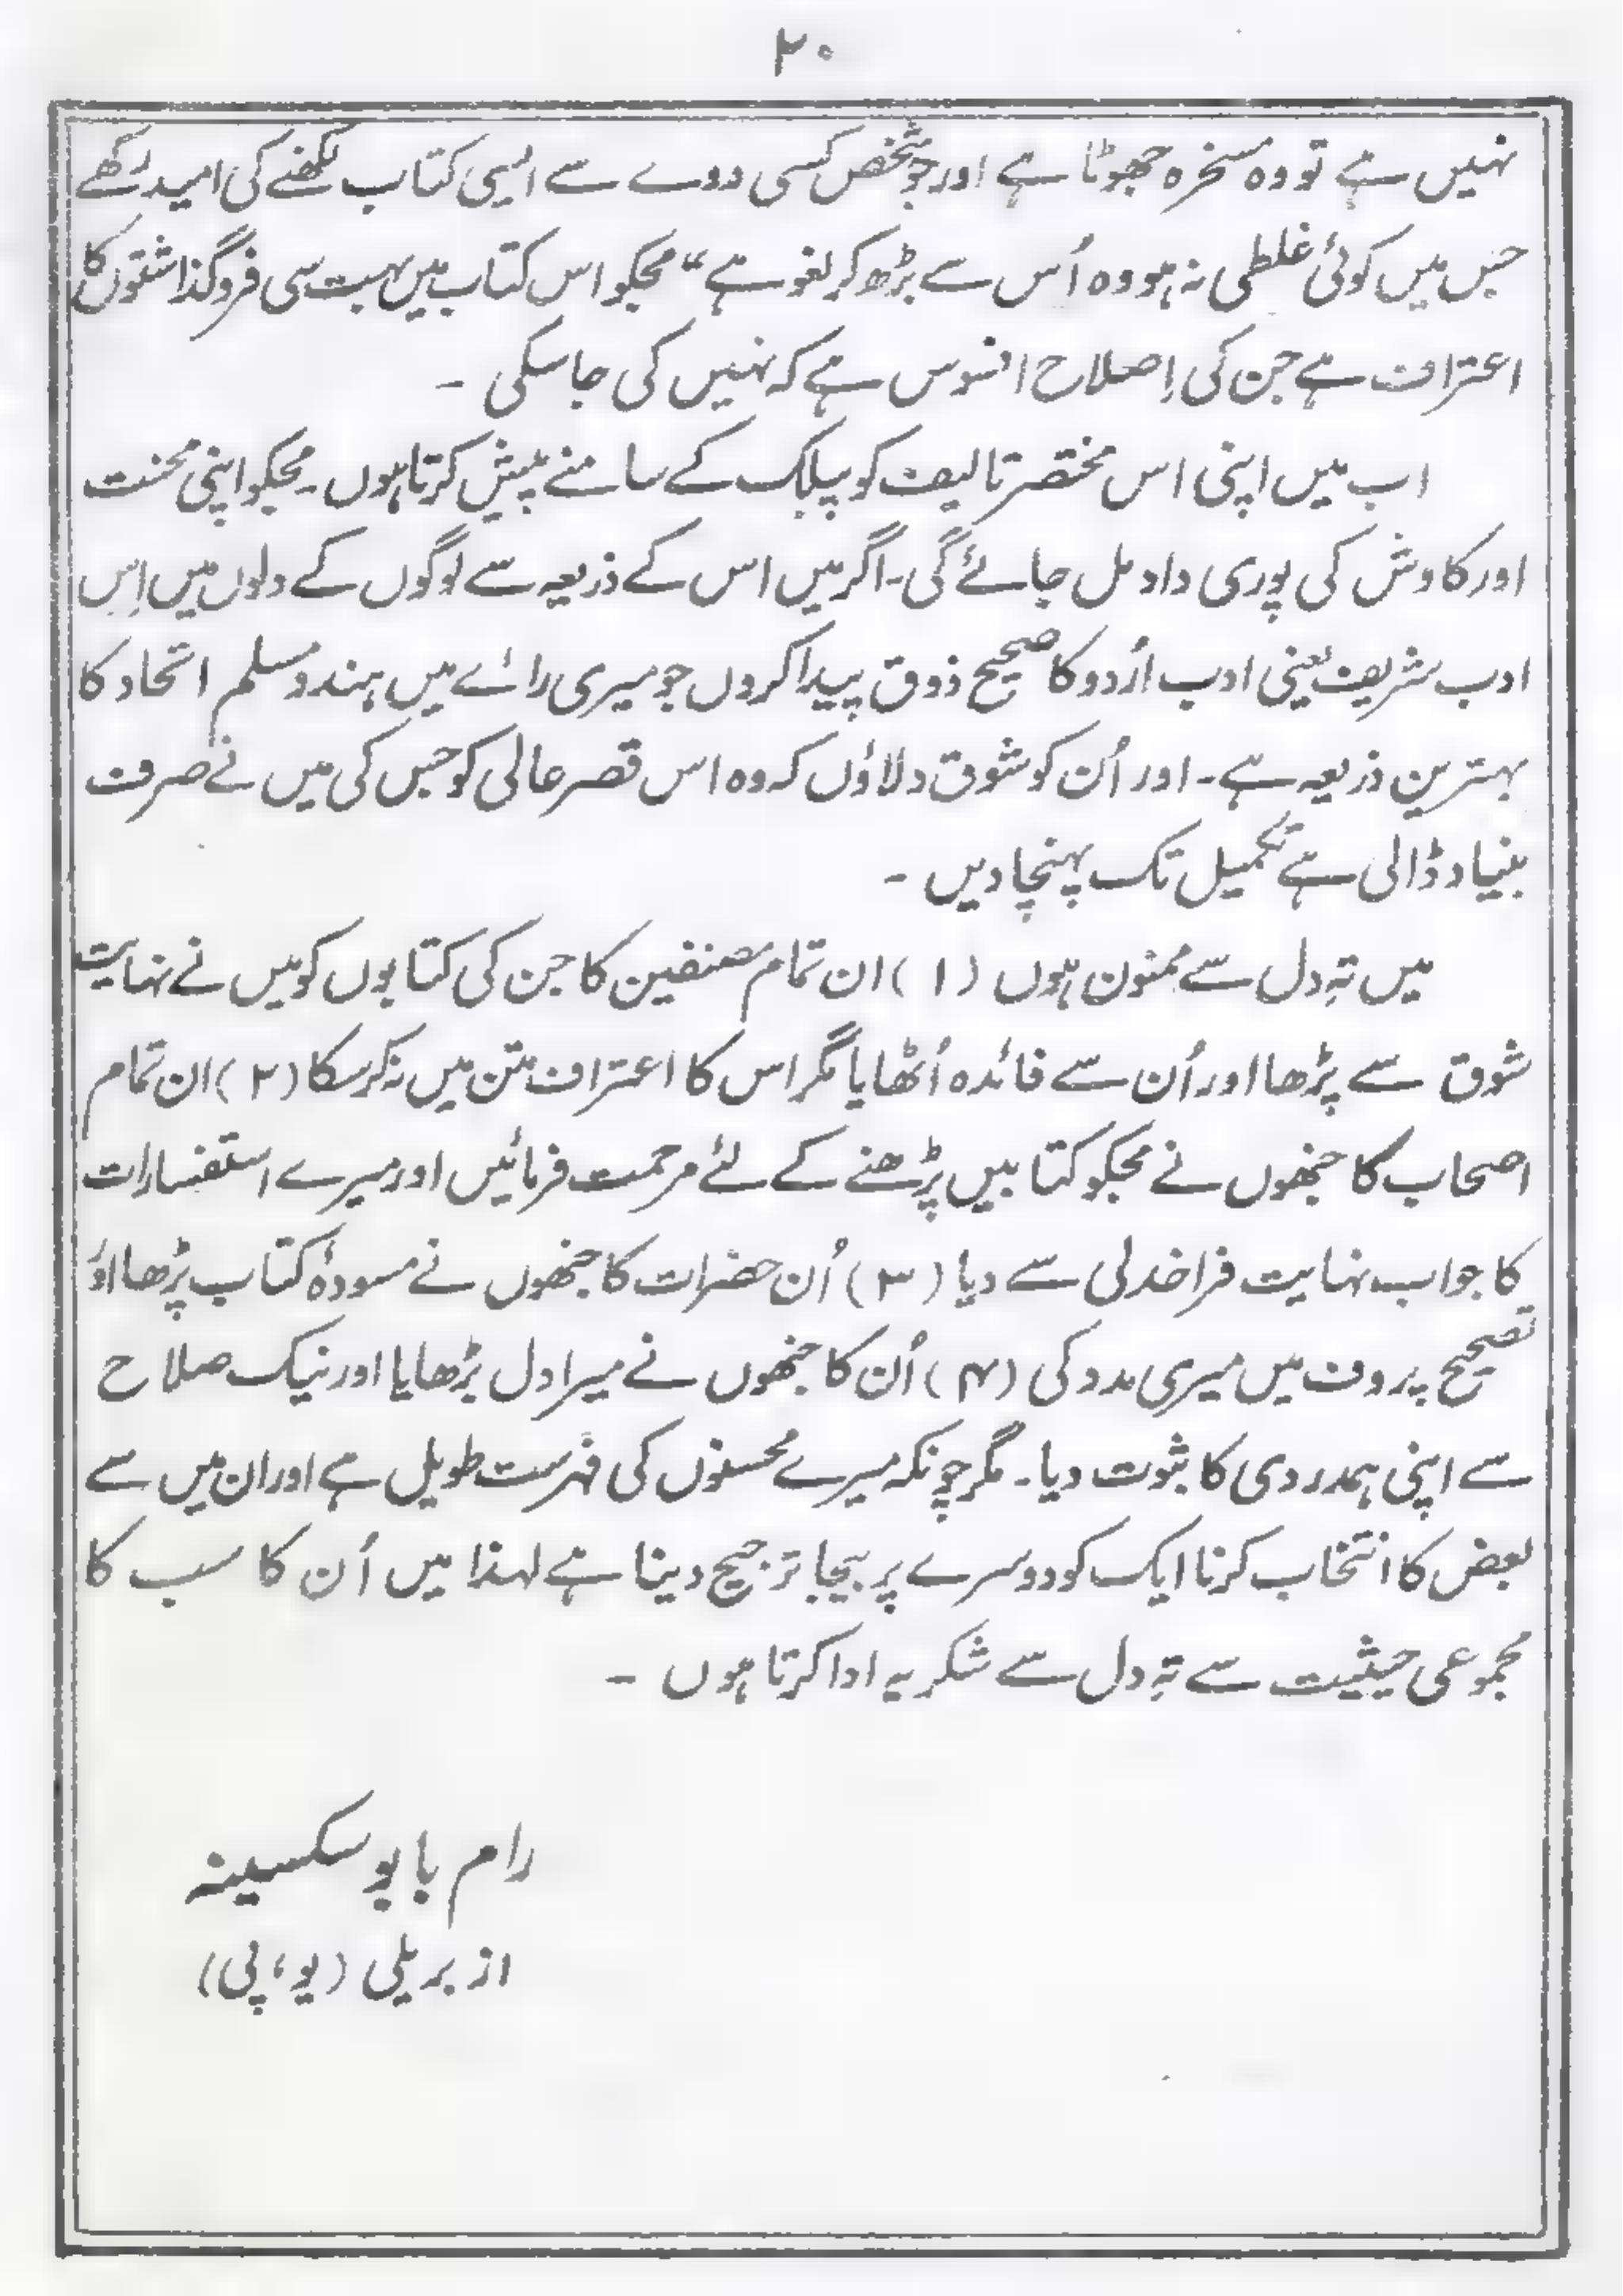 ۲۰
نہیں ہے تو وہ مسخرہ جھوٹا ہے اور جو شخص کسی دوے سے ایسی کتاب لکھنے کی امید رکھے
جس میں کوئی غلطی نہ ہو وہ اُس سے بڑھ کر لغو ہے“ مجکو اس کتاب میں بہت سی فروگذاشتوں کا
اعتراف ہے جن کی اِصلاح افسوس ہے کہ نہیں کی جاسکی ۔
اب میں اپنی اس مختصر تالیف کو پبلک کے سامنے پیش کرتا ہوں۔ مجکو اپنی محنت
اور کاوش کی پوری داد مل جائے گی۔ اگر میں اس کے ذریعہ سے لوگوں کے دلوں میں اِس
ادب شریف یعنی ادب اُردو کا صحیح ذوق پیدا کروں جو میری رائے میں ہندو مسلم اتحاد کا
بہترین ذریعہ ہے۔ اور اُن کو شوق دلاؤں کہ وہ اس قصر عالی کو جس کی میں نے صرف
بنیاد ڈالی ہے تکمیل تک پہنچا دیں ۔
میں تہِ دل سے ممنون ہوں (۱) ان تمام مصنفین کا جن کی کتابوں کو میں نے نہایت
شوق سے پڑھا اور اُن سے فائدہ اُٹھایا مگر اس کا اعتراف متن میں نہ کرسکا (۲) ان تمام
اصحاب کا جنھوں نے مجکو کتابیں پڑھنے کے لئے مرحمت فرمائیں اور میرے استفسارات
کا جواب نہایت فراخدلی سے دیا (۳) اُن حضرات کا جنھوں نے مسودۂ کتاب پڑھا اور
تصحیح پروف میں میری مدد کی (۴) اُن کا جنھوں نے میرا دل بڑھایا اور نیک صلاح
سے اپنی ہمدردی کا ثبوت دیا۔ مگر چونکہ میرے محسنوں کی فہرست طویل ہے اور ان میں سے
بعض کا انتخاب کرنا ایک کو دوسرے پر بیجا ترجیح دینا ہے لہذا میں اُن کا سب کا
مجموعی حیثیت سے تہِ دل سے شکریہ ادا کرتا ہوں ۔
رام بابو سکسینہ
از بریلی (یو، پی)